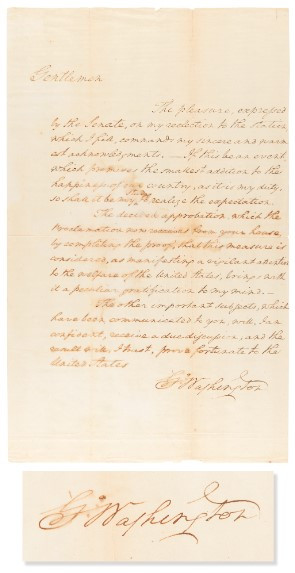 Gentlemen
The pleasure, expressed
by the Senate, on my reelection to the station
which I fill, commands my sincere and warm-
est acknowledgments. — If this be an event
which promises the smallest addition to the
happiness of our country, as it is my duty,
so shall it be my study to realize the expectation.
The decided approbation, which the
Proclamation now receives from your house,
by completing the proof, that this measure is
considered, as manifesting a vigilant attention
to the welfare of the United States, brings with
it a peculiar gratification to my mind. —
The other important subjects, which
have been communicated to you, will, I am
confident, receive a due discussion, and the
result will, I trust, prove fortunate to the
United States
Go: Washington
Go: Washington